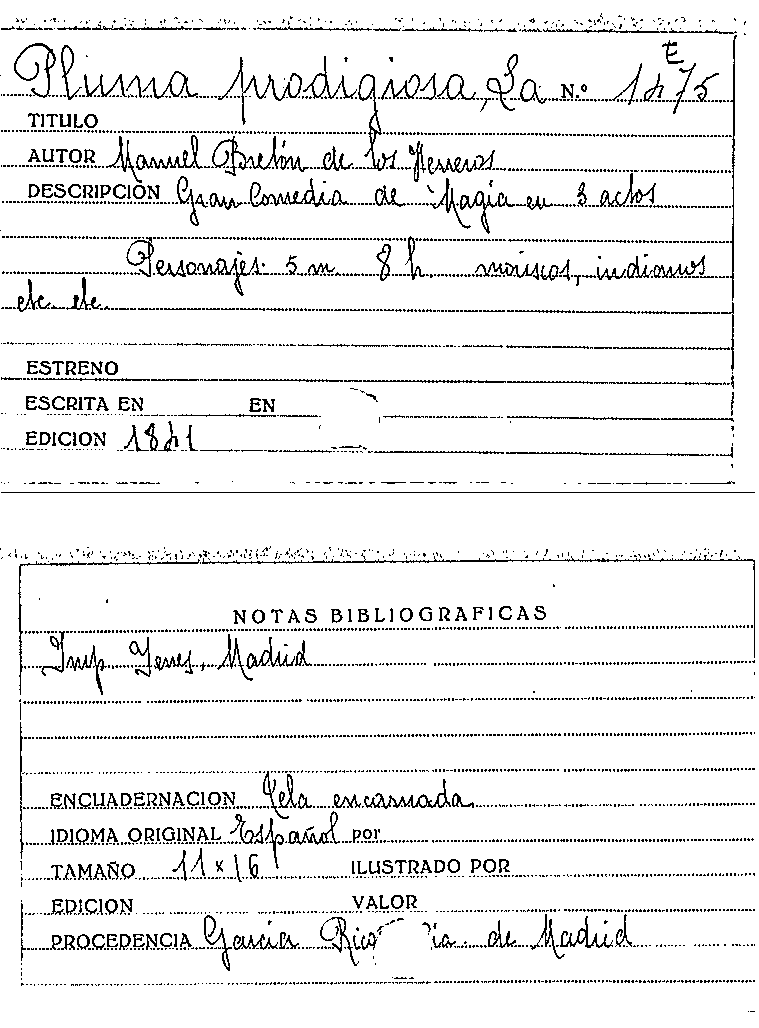 E
Pluma prodigiosa, La N.º 1475
TITULO
AUTOR Manuel Bretón de los Herreros
DESCRIPCIÓN Gran Comedia de Magia en 3 actos
Personajes: 5 m 8 h moriscos, indianos
etc. etc.
ESTRENO
ESCRITA EN EN
EDICION 1841
NOTAS BIBLIOGRAFICAS
Imp. Yenes, Madrid
ENCUADERNACION Tela encarnada
IDIOMA ORIGINAL Español por
TAMAÑO 11 x 16 ILUSTRADO POR
EDICION VALOR
PROCEDENCIA Garcia Rico de Madrid